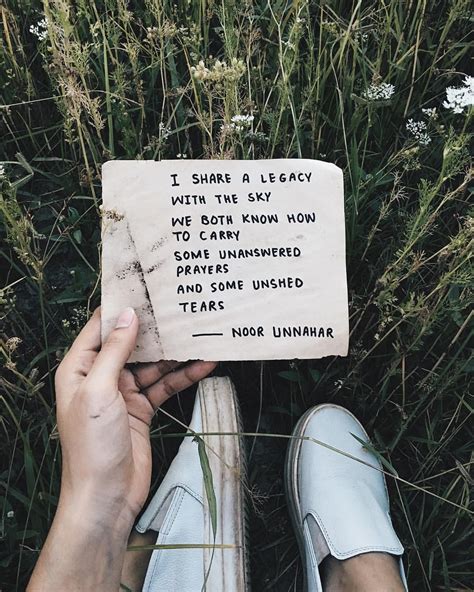 I SHARE A LEGACY
WITH THE SKY
WE BOTH KNOW HOW
TO CARRY
SOME UNANSWERED
PRAYERS
AND SOME UNSHED
TEARS
— NOOR UNNAHAR